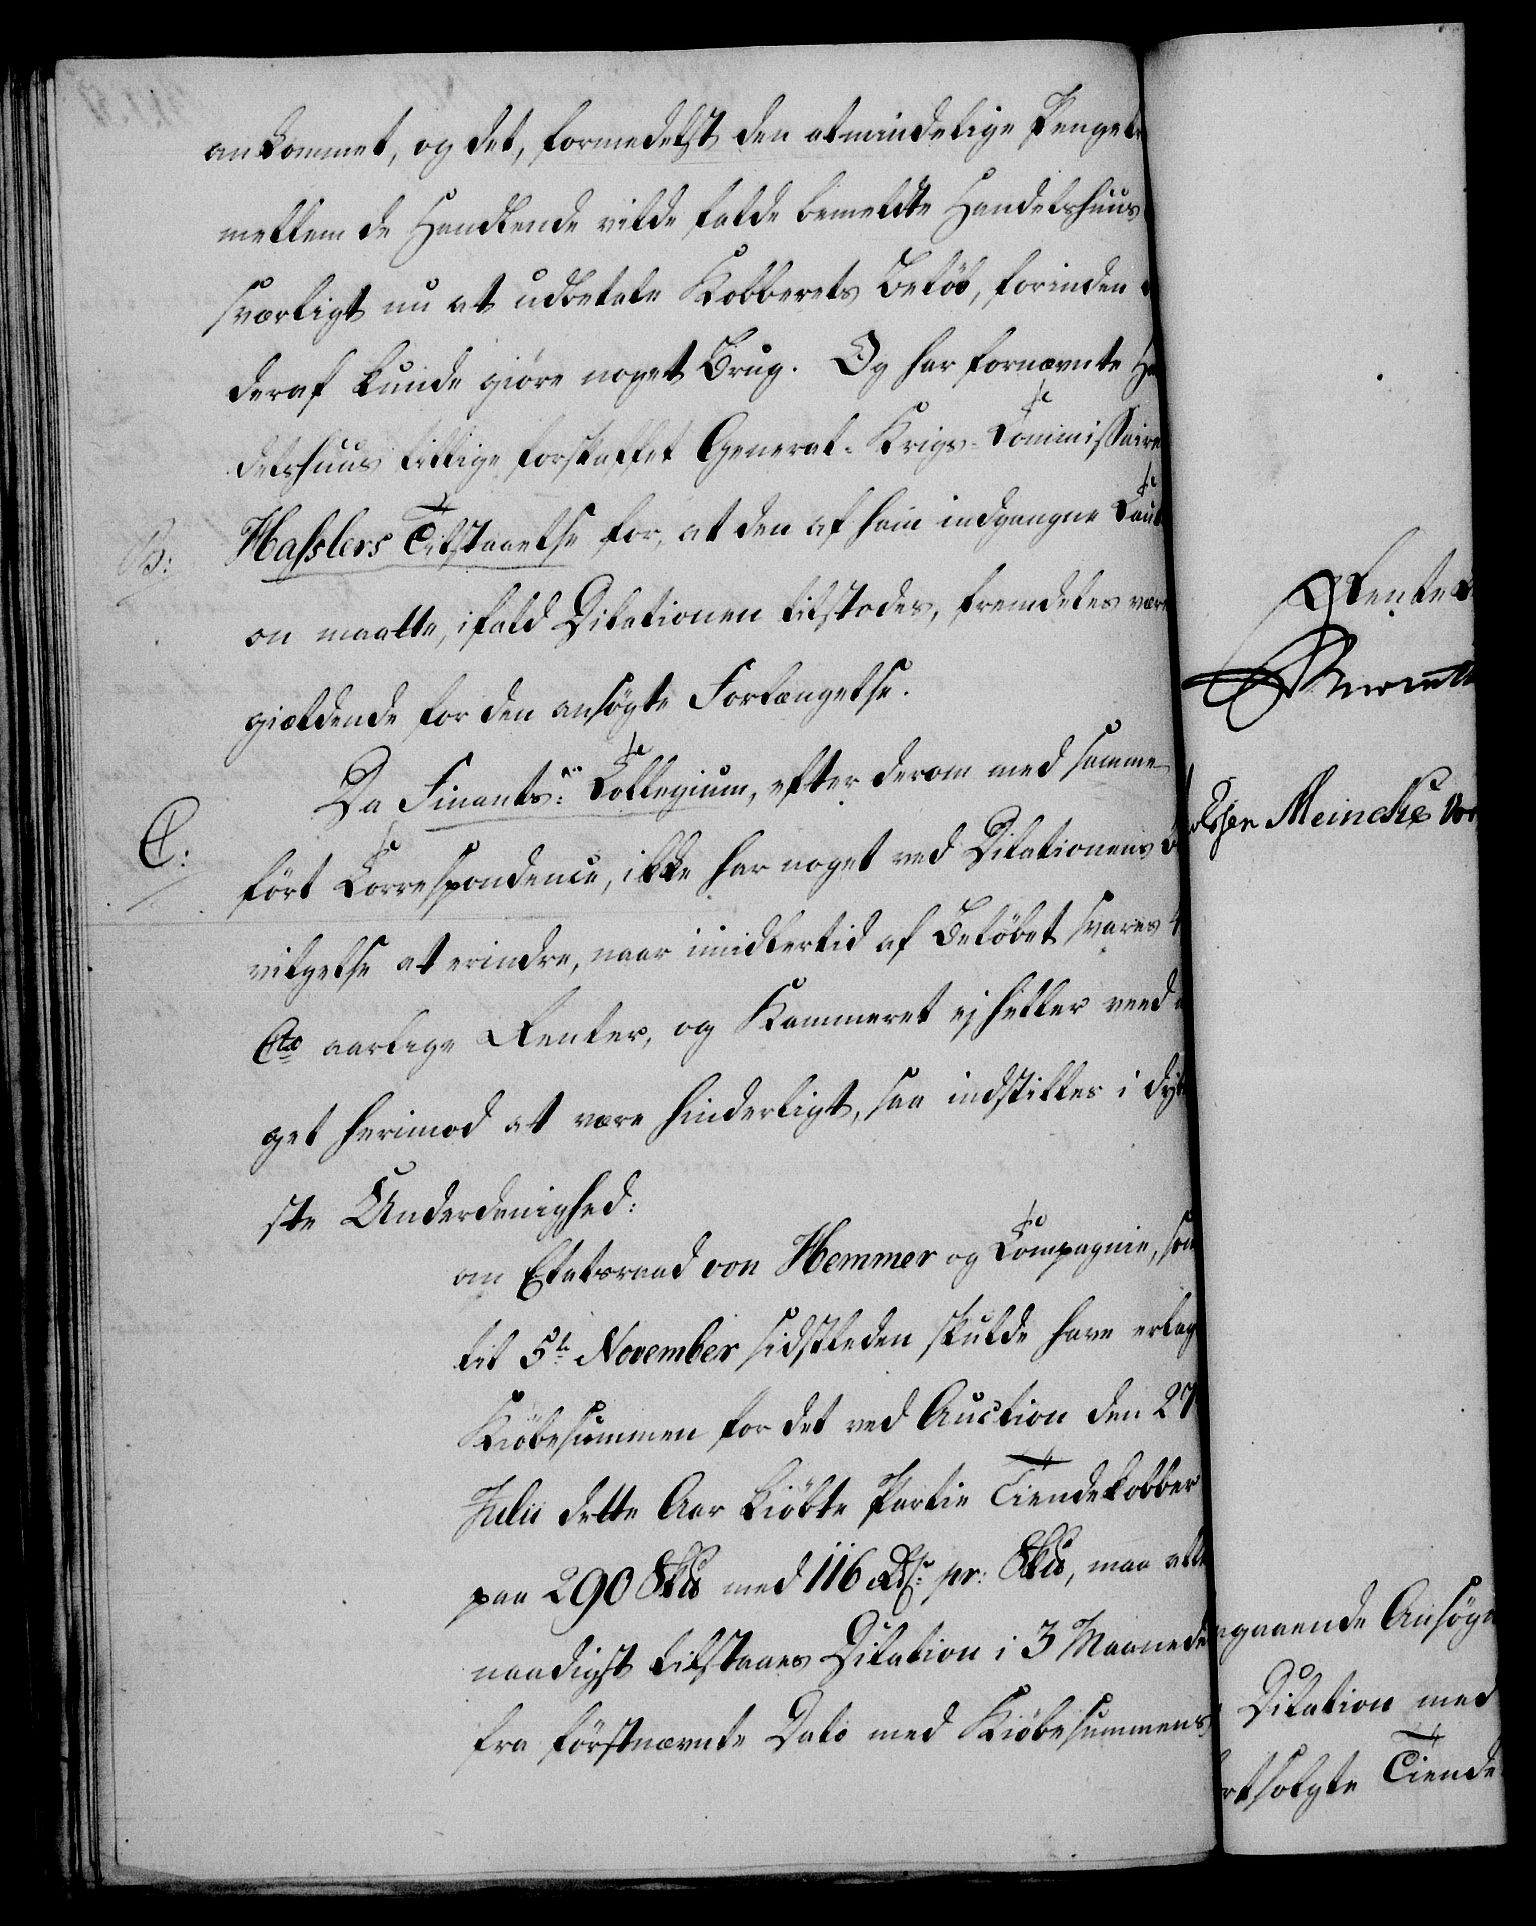 ankommet, og det, formedelst den almindelige Penge
mellem de Handlende vilde falde bemeldte Handelshuus
sværligt nu at udbetale Kobberets Beløb, forinden
deraf kunde giøre noget Brug. Og har fornævnte Ha
delshuus tillige forskaffet General-Krigs-Commissaire
B: Hasslers Tilstaaelse for, at den af ham indgangne Cauti
on maatte, ifald Dilationen tilstodes, fremdeles være
gieldende for den ansøgte Forlængelse.
Da Finants-Collegium, efter derom med samme
C: ført Correspondence, ikke har noget ved Dilationens Be
vilgelse at erindre, naar imidlertid af Beløbet svares 4
Cto aarlige Renter, og Kammeret ej heller veed
get herimod at være hinderligt, saa indstilles i dyb
ste Underdanighed:
om Etatsraad von Hemmer og Compagnie, som
til 5te November sidstleden skulde have erlagt
Kiøbesummen for det ved Auction den 27
Julii dette Aar kiøbte Partie Tiendekobber
paa 290 Sk℔ med 116 Rdr pr: Sk℔, maa aller
naadigst tilstaaes Dilation i 3 Maaneder
fra førstnævnte Dato med Kiøbesummens
Rente
Meincke
gaaende Ansøgn
Dilation med
solgte Tiende